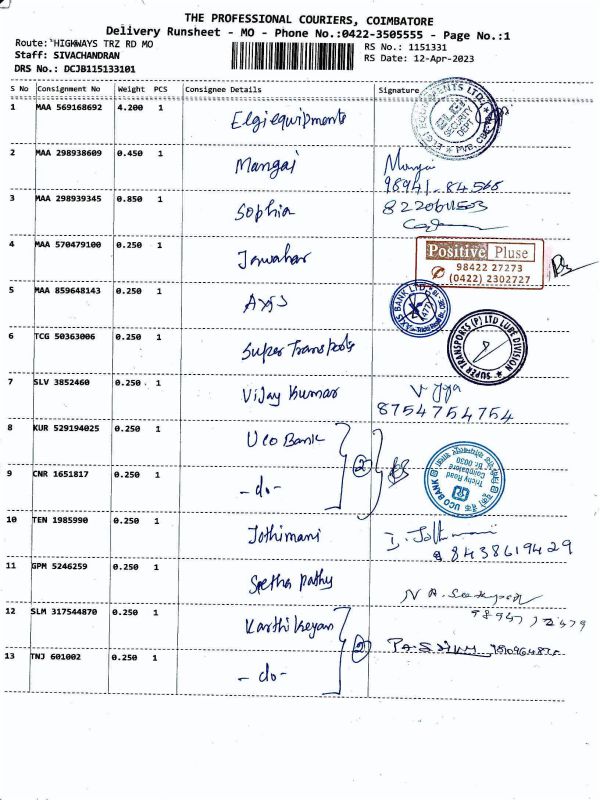 THE PROFESSIONAL COURIERS, COIMBATORE
Delivery Runsheet - MO - Phone No.:0422-3505555 - Page No.:1
Route: HIGHWAYS TRZ RD MO
RS No.: 1151331
Staff: SIVACHANDRAN
RS Date: 12-Apr-2023
DRS No.: DCJB115133101
S No Consignment No Weight PCS Consignee Details Signature
1 MAA 569168692 4.200 1 Elgi equipments
SECURITY DEPT
2 MAA 298938609 0.450 1 Mangai Mangai
98941-84568
3 MAA 298939345 0.850 1 Sophia 8220611503
4 MAA 570479100 0.250 1 Jawahar
Positive Pluse
98422 27273
(0422) 2302727
5 MAA 859648143 0.250 1 Axis
AXIS BANK LTD
6 TCG 50363006 0.250 1 Super Transports
SUPER TRANSPORTS (P) LTD LUBE DIVISION
7 SLV 3852460 0.250 1 Vijay Kumar
8754754754
8 KUR 529194025 0.250 1 Uco Bank
2
9 CNR 1651817 0.250 1 -do-
UCO BANK
Trichy Road
Coimbatore
Br. 0030
10 TEN 1985990 0.250 1 Jothimani
8438619429
11 GPM 5246259 0.250 1 Seetha pathy
12 SLM 317544870 0.250 1 Karthikeyan
2
13 TNJ 601002 0.250 1 -do-